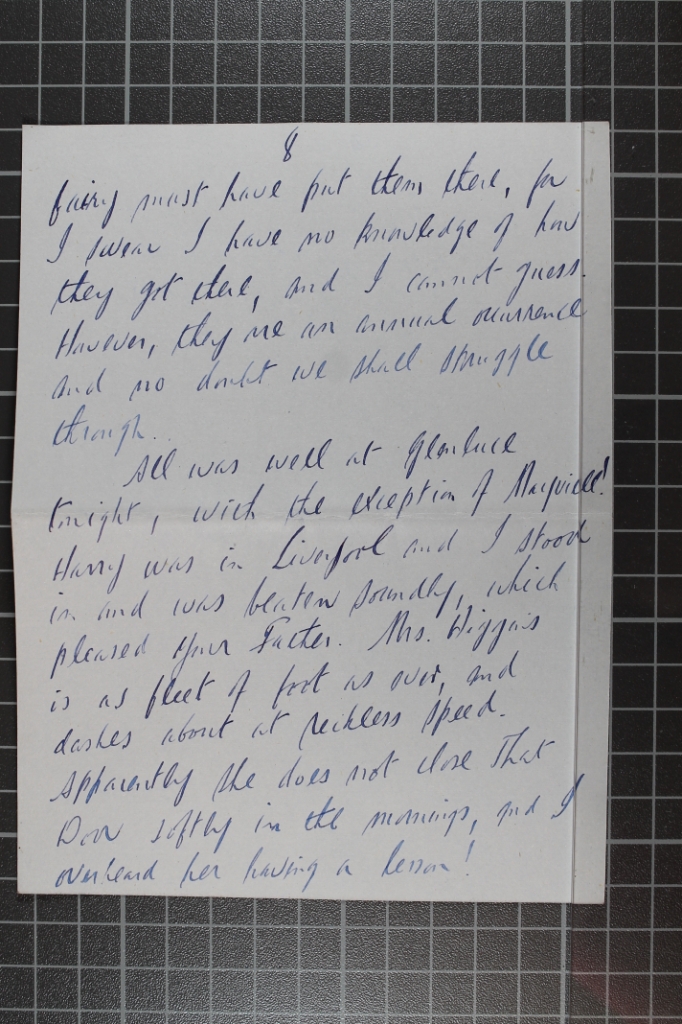 8
fairy must have put them there, for
I swear I have no knowledge of how
they got there, and I cannot guess.
However, they are an annual ocurrence
and no doubt we shall struggle
through..
All was well at Glenluce
tonight, with the exception of
Harry was in Liverpool and I stood
in and was beaten soundly, which
pleased your Father. Mrs. Higgins
is as fleet of foot as ever, and
dashes about at reckless speed.
Apparently she does not close That
Door softly in the mornings, and I
overheard her having a lesson!